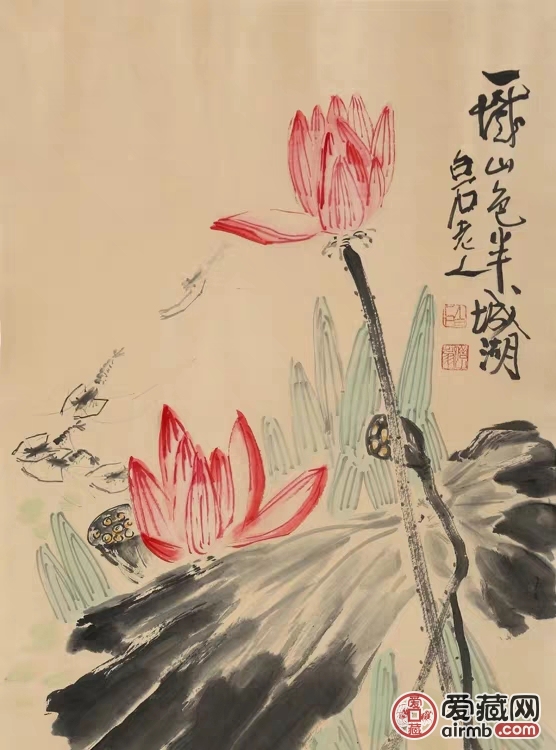 一城山色半城湖
老人
爱藏网
airmb.com